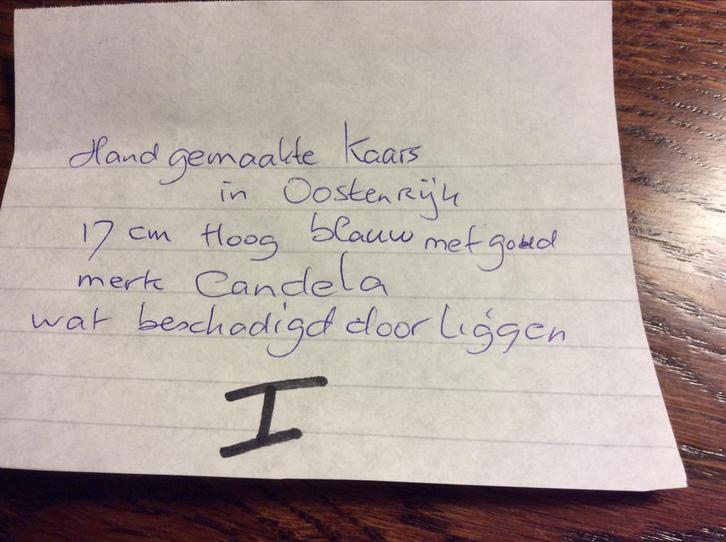 Hand gemaakte Kaars
in Oostenrijk
17 cm Hoog blauw met goud
merk Candela
wat beschadigd door liggen
I